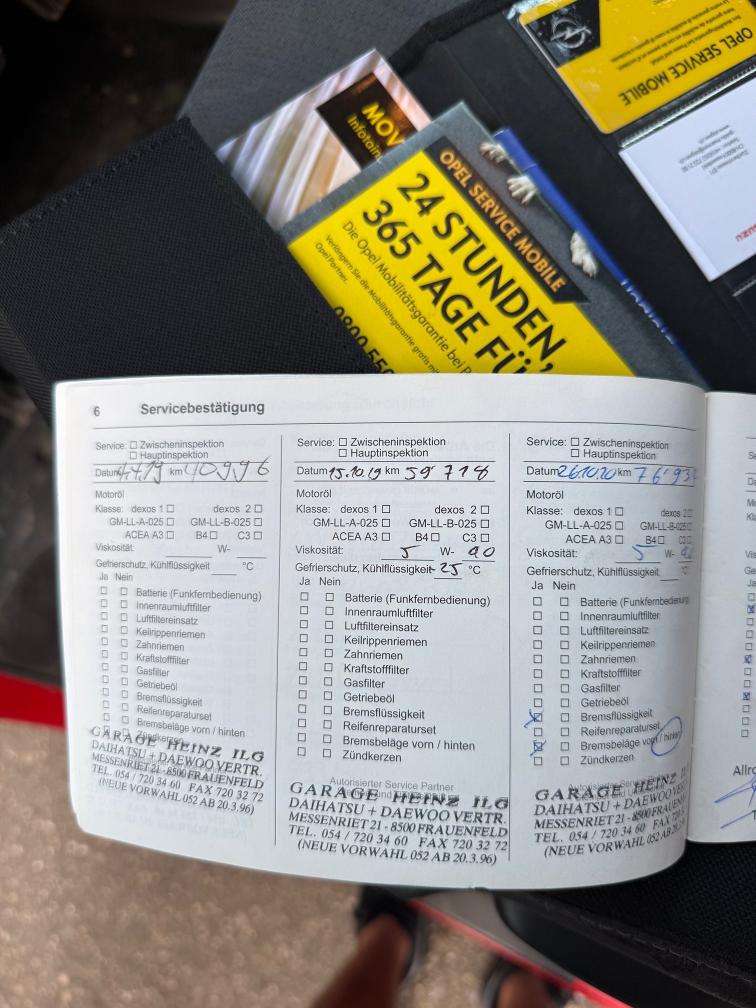 OPEL SERVICE MOBILE
MOV
Infotain
OPEL SERVICE MOBILE
24 STUNDEN,
365 TAGE FÜ
Die Opel Mobilitätsgarantie bei P
Verlängern Sie die Mobilitätsgarantie gratis
Opel Partner.
0800 550
6 Servicebestätigung
Service: ☐ Zwischeninspektion
☐ Hauptinspektion
Datum 4.4.19 km 40996
Motoröl
Klasse: dexos 1 ☐ dexos 2 ☐
GM-LL-A-025 ☐ GM-LL-B-025 ☐
ACEA A3 ☐ B4 ☐ C3 ☐
Viskosität: W-
Gefrierschutz, Kühlflüssigkeit °C
Ja Nein
☐ ☐ Batterie (Funkfernbedienung)
☐ ☐ Innenraumluftfilter
☐ ☐ Luftfiltereinsatz
☐ ☐ Keilrippenriemen
☐ ☐ Zahnriemen
☐ ☐ Kraftstofffilter
☐ ☐ Gasfilter
☐ ☐ Getriebeöl
☐ ☐ Bremsflüssigkeit
☐ ☐ Reifenreparaturset
☐ ☐ Bremsbeläge vorn / hinten
☐ ☐ Zündkerzen
GARAGE HEINZ ILG
DAIHATSU + DAEWOO VERTR.
MESSENRIET 21 - 8500 FRAUENFELD
TEL. 054 / 720 34 60 FAX 720 32 72
(NEUE VORWAHL 052 AB 20.3.96)
Service: ☐ Zwischeninspektion
☐ Hauptinspektion
Datum 15.10.19 km 59'718
Motoröl
Klasse: dexos 1 ☐ dexos 2 ☐
GM-LL-A-025 ☐ GM-LL-B-025 ☐
ACEA A3 ☐ B4 ☐ C3 ☐
Viskosität: 5 W-
Gefrierschutz, Kühlflüssigkeit -25 °C
Ja Nein
☐ ☐ Batterie (Funkfernbedienung)
☐ ☐ Innenraumluftfilter
☐ ☐ Luftfiltereinsatz
☐ ☐ Keilrippenriemen
☐ ☐ Zahnriemen
☐ ☐ Kraftstofffilter
☐ ☐ Gasfilter
☐ ☐ Getriebeöl
☐ ☐ Bremsflüssigkeit
☐ ☐ Reifenreparaturset
☐ ☐ Bremsbeläge vorn / hinten
☐ ☐ Zündkerzen
Autorisierter Service Partner
GARAGE HEINZ ILG
DAIHATSU + DAEWOO VERTR.
MESSENRIET 21 - 8500 FRAUENFELD
TEL. 054 / 720 34 60 FAX 720 32 72
(NEUE VORWAHL 052 AB 20.3.96)
Service: ☐ Zwischeninspektion
☐ Hauptinspektion
Datum 26.10.20 km 76'93
Motoröl
Klasse: dexos 1 ☐ dexos 2 ☐
GM-LL-A-025 ☐ GM-LL-B-025 ☐
ACEA A3 ☐ B4 ☐ C3 ☐
Viskosität: 5 W-
Gefrierschutz, Kühlflüssigkeit °C
Ja Nein
☐ ☐ Batterie (Funkfernbedienung)
☐ ☐ Innenraumluftfilter
☐ ☐ Luftfiltereinsatz
☐ ☐ Keilrippenriemen
☐ ☐ Zahnriemen
☐ ☐ Kraftstofffilter
☐ ☐ Gasfilter
☐ ☐ Getriebeöl
☒ ☐ Bremsflüssigkeit
☐ ☐ Reifenreparaturset
☒ ☐ Bremsbeläge vorn / hinten
☐ ☐ Zündkerzen
GARAGE HEINZ ILG
DAIHATSU + DAEWOO VERTR.
MESSENRIET 21 - 8500 FRAUENFELD
TEL. 054 / 720 34 60 FAX 720
(NEUE VORWAHL 052 AB 20.3
Allro